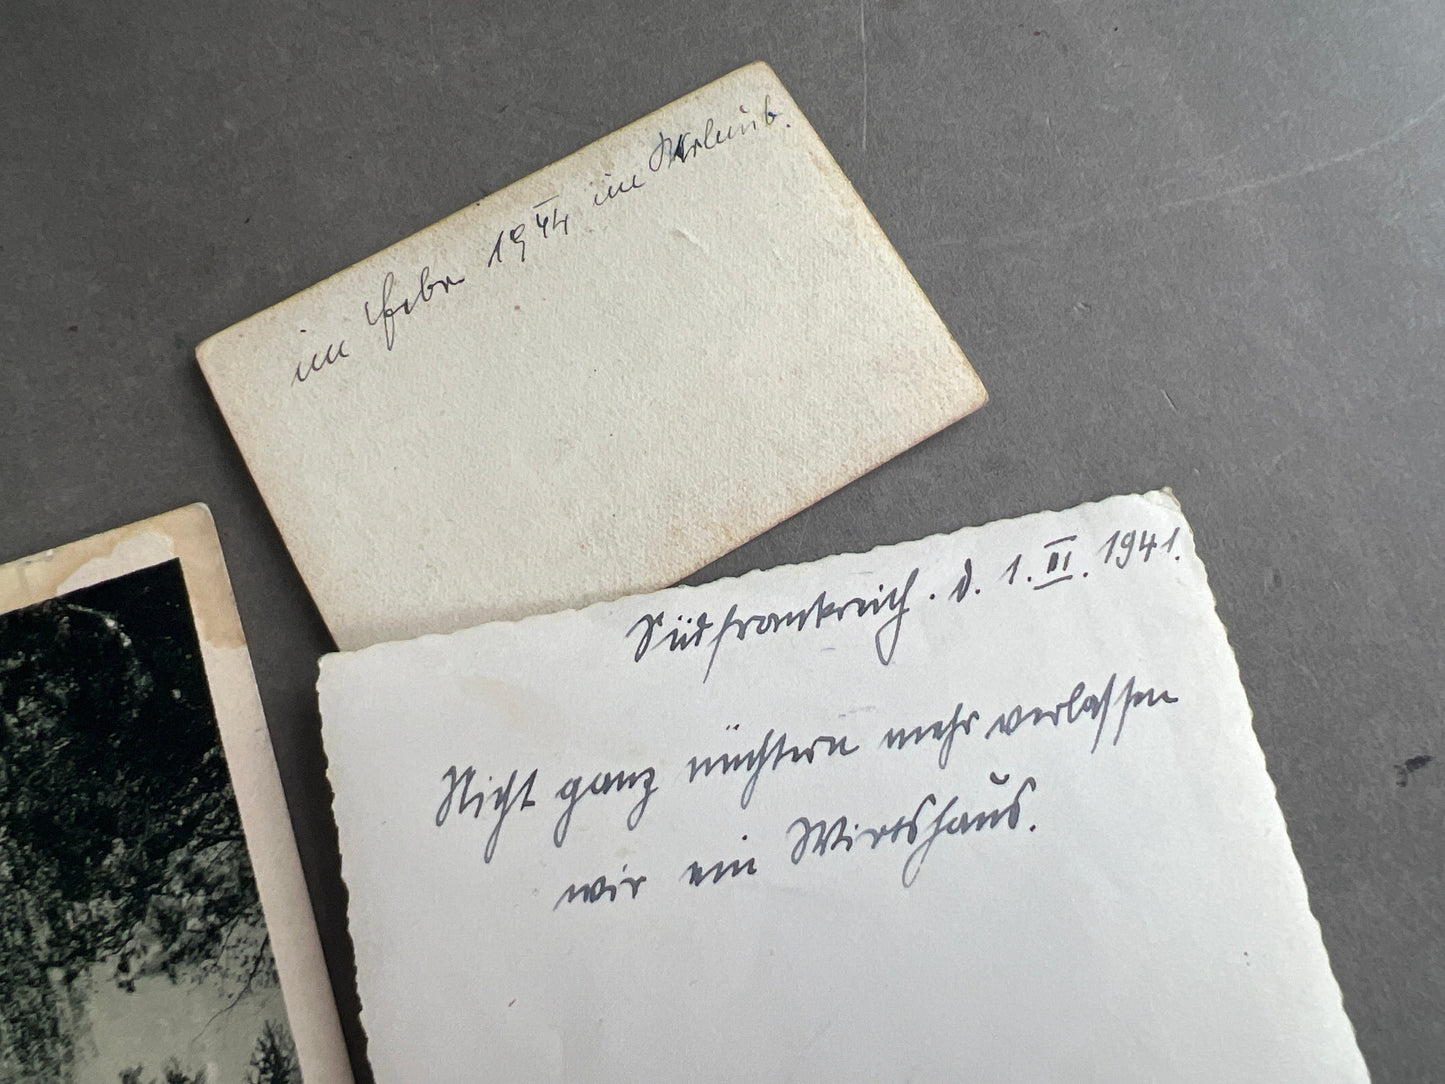 im Febr 1944 im Urlaub.
Südfrankreich. d. 1. III. 1941.
Nicht ganz nüchtern mehr verlassen
wir ein Wirtshaus.